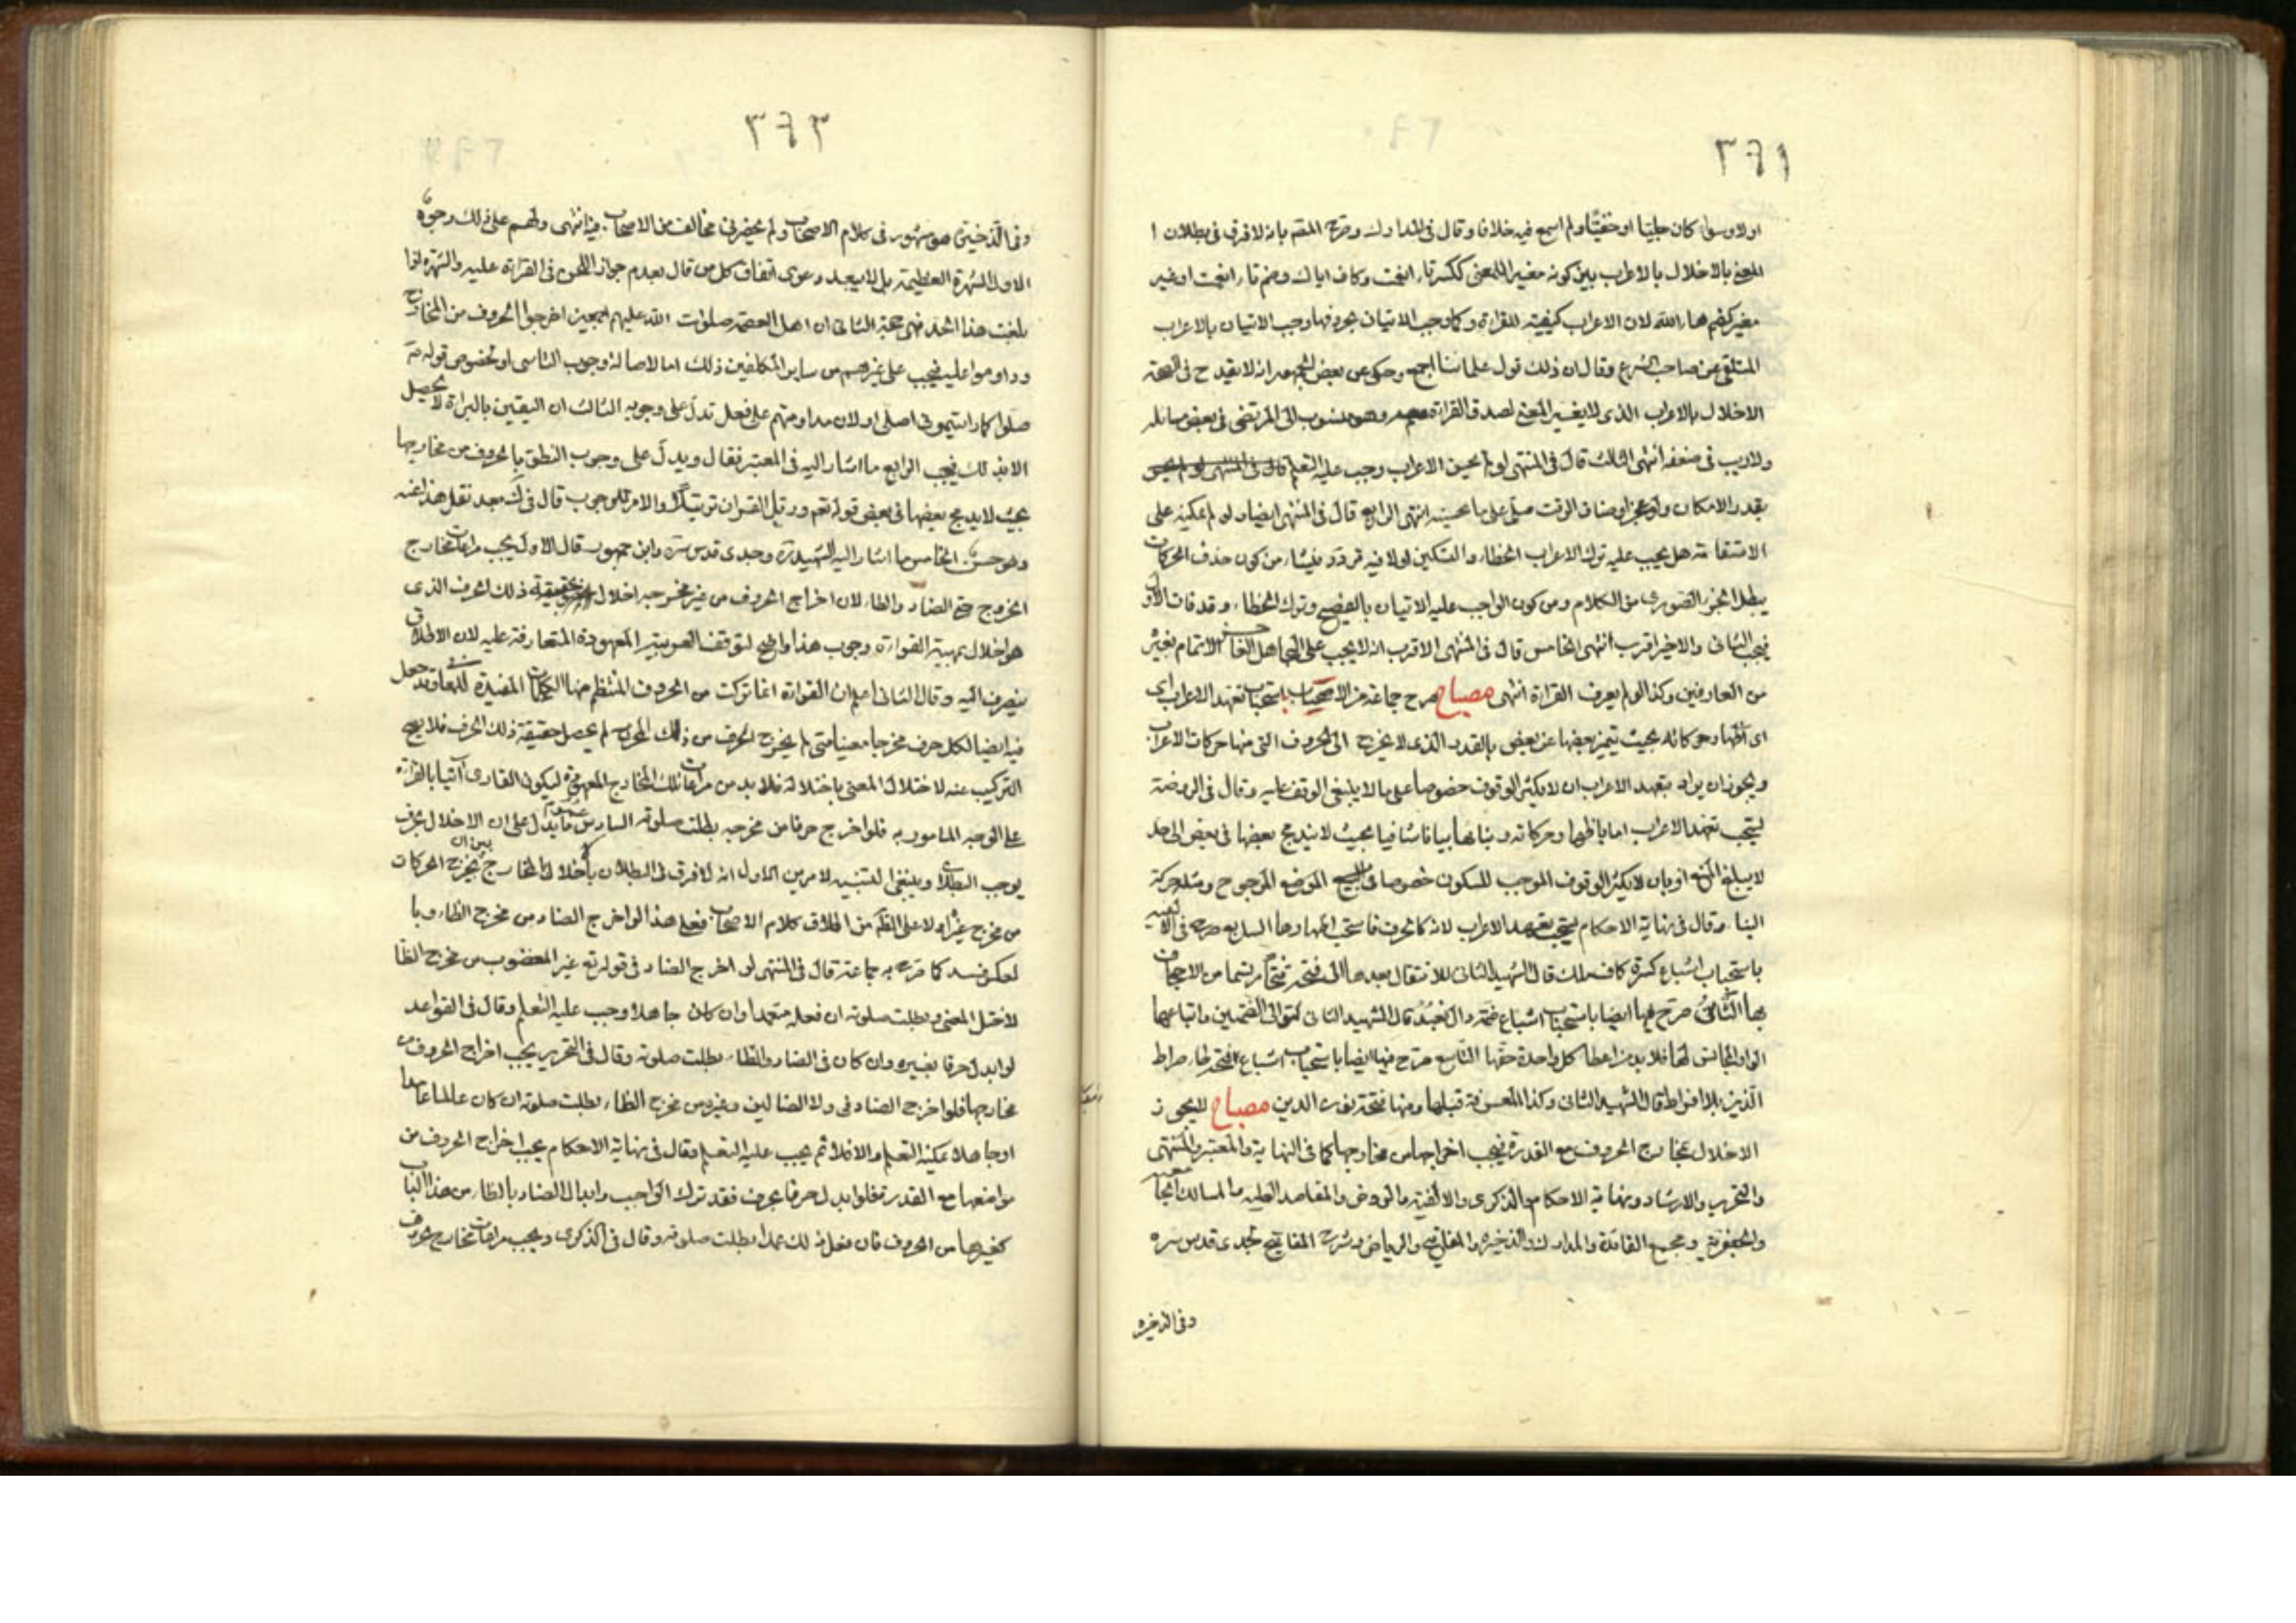 ٣٦١
اولا وسواء كان جليا او خفيا ولم اسمع فيه خلافا وقال فى المدارك وصرح المصنف بانه لا فرق فى بطلان ا
المعنى بالاخلال بالاعراب بين كونه مغيرا للمعنى ككسر تاء انعمت وكاف اياك وضم تاء انعمت او غير
مغير كضم هاء الله لان الاعراب كيفية للقراءة وكما وجب الاتيان بحروفها وجب الاتيان بالاعراب
المتلقى عن صاحب الشرع وقال ان ذلك قول علمائنا اجمع وحكى عن بعض الجمهور انه لا يقدح فى الصحة
الاخلال بالاعراب الذى لا يغير المعنى لصدق القراءة وهو منسوب الى المرتضى فى بعض مسائله
ولا ريب فى ضعفه انتهى الثالث قال فى المنتهى لو لم يحسن الاعراب وجب عليه التعلم
بقدر الامكان ولو عجز او ضاق الوقت صلى على ما يحسنه انتهى الرابع قال فى المنتهى ايضا ولو لم يمكنه على
الاستقامة هل يجب عليه ترك الاعراب الخطاء والتسكين اولا فيه تردد ينشاء من كون حذف الحركات
يبطل الجزء الصورى من الكلام ومن كون الواجب عليه الاتيان بالصحيح وترك الخطاء وقد فات الاول
فيجب الثانى والاخير اقرب انتهى الخامس قال فى المنتهى الاقرب انه لا يجب على الجاهل الائتمام بغيره
من العارفين وكذا لو لم يعرف القراءة انتهى مصباح صرح جماعة من الاصحاب باستحباب تعهد الاعراب اى
اى اظهار حركاته بحيث تتميز بعضها عن بعض بالقدر الذى لا يخرج الى الحروف التى منها حركات الاعراب
ويجوز ان يراد بتعهد الاعراب ان لا يكثر الوقوف خصوصا على ما لا ينبغى الوقف عليه وقال فى الروضة
يستحب تعهد الاعراب اما باظهار حركاته وبيانها بيانا شافيا بحيث لا يندمج بعضها فى بعض الى حد
لا يبلغ المنع او بان لا يكثر الوقوف الموجب للسكون خصوصا فى الموضع المرجوح ومثله حركة
البناء وقال فى نهاية الاحكام يستحب تعهد الاعراب لانه كالحرف فاستحب اظهارها السابع صرح فى الالفية
باستحباب اشباع كسرة كاف ملك قال الشهيد الثانى للانتقال بعدها الى فتحة
بها الثامن صرح فيها ايضا باستحباب اشباع ضمة دال نعبد قال الشهيد الثانى لتوالى الضمتين واتباعهما
الواو المجانس لهما فلا بد من اعطاء كل واحدة حقها التاسع صرح فيها ايضا باستحباب اشباع فتحة طاء صراط
الذين بلا افراط قال الشهيد الثانى وكذا قبلها ومنها فتحة نون الذين مصباح لا يجوز
الاخلال بمخارج الحروف مع القدرة فيجب اخراجها من مخارجها كما فى النهاية والمعتبر والمنتهى
والتحرير والارشاد ونهاية الاحكام والذكرى والالفية والروض والمقاصد العلية والمسالك
والجعفرية ومجمع الفائدة والمدارك والذخيرة والرياض وشرح المفاتيح لجدى قدس سره
وفى الذخيرة
٣٦٣
وفى الذخيرة هو مشهور فى كلام الاصحاب ولم يحضرنى مخالف من الاصحاب فيه انتهى ولهم على ذلك وجوه
الاول الشهرة العظيمة بل لا يبعد دعوى اتفاق كل من قال بعدم جواز اللحن فى القراءة عليه والشهرة اذا
بلغت هذا الحد فهى حجة الثانى ان اهل العصمة صلوات الله عليهم اجمعين اخرجوا الحروف من المخارج
وداوموا عليه فيجب على غيرهم من ساير المكلفين ذلك اما لاصالة وجوب التاسى او لخصوص قوله ص
صلوا كما رايتمونى اصلى او لان مداومتهم على فعل تدل على وجوبه الثالث ان اليقين بالبراءة لا يحصل
الا بذلك فيجب الرابع ما اشار اليه فى المعتبر فقال ويدل على وجوب النطق بالحروف من مخارجها
بحيث لا يدمج بعضها فى بعض قوله تعم ورتل القران ترتيلا والامر للوجوب قال فى ك بعد نقل هذا عنه
وهو حسن الخامس ما اشار اليه الشهيد ره وجدى قدس سره وابن جمهور قال الاول يجب مراعات مخارج
الخروج حتى الضاد والظاء لان اخراج الحروف من غير مخرجه اخلال بحقيقة ذلك الحرف الذى
هو اخلال بمهية القراءة وجوب هذا واضح لتوقف العربية المعهودة المتعارفة عليه لان الاطلاق
ينصرف اليه وقال الثانى اعلم ان القراءة انما تركبت من الحروف المنتظم منها الكلمات المفيدة للمعانى وقد جعل
فيه ايضا لكل حرف مخرجا معينا متى لم يخرج الحرف من ذلك المخرج لم يحصل حقيقة ذلك الحرف فلا يصح
التركيب عنه لاختلال المعنى باختلاله فلا بد من مراعات تلك المخارج المعهودة ليكون القارى آتيا بالقراءة
على الوجه المامور به فلو اخرج حرفا من مخرجه بطلت صلوته السادس عموم ما يدل على ان الاخلال بحرف
يوجب البطلان وينبغى التنبيه لامرين الاول انه لا فرق فى البطلان باخلال المخارج بين ان يخرج الحركات
من مخرج غيره اولا على الظاهر من اطلاق كلام الاصحاب فعلى هذا لو اخرج الضاد من مخرج الظاء وبا
لعكس فسد كما صرح به جماعة قال فى المنتهى لو اخرج الضاد فى قوله تع غير المغضوب من مخرج الظا
لاختل المعنى وبطلت صلوته ان فعله متعمدا وان كان جاهلا وجب عليه التعلم وقال فى القواعد
لو ابدل حرفا بغيره وان كان فى الضاد والظاء بطلت صلوته وقال فى التحرير يجب اخراج الحروف من
مخارجها فلو اخرج الضاد فى ولا الضالين وغيره من مخرج الظاء بطلت صلوته ان كان عالما عامدا
او جاهلا يمكنه التعلم والا فلا ثم يجب عليه التعلم وقال فى نهاية الاحكام يجب اخراج الحروف من
مواضعها مع القدرة فلو ابدل حرفا بحرف فقد ترك الواجب وابدال الضاد بالظاء من هذا الباب
كغيرها من الحروف فان فعل ذلك عمدا بطلت صلوته وقال فى الذكرى ويجب مراعات مخارج الحروف